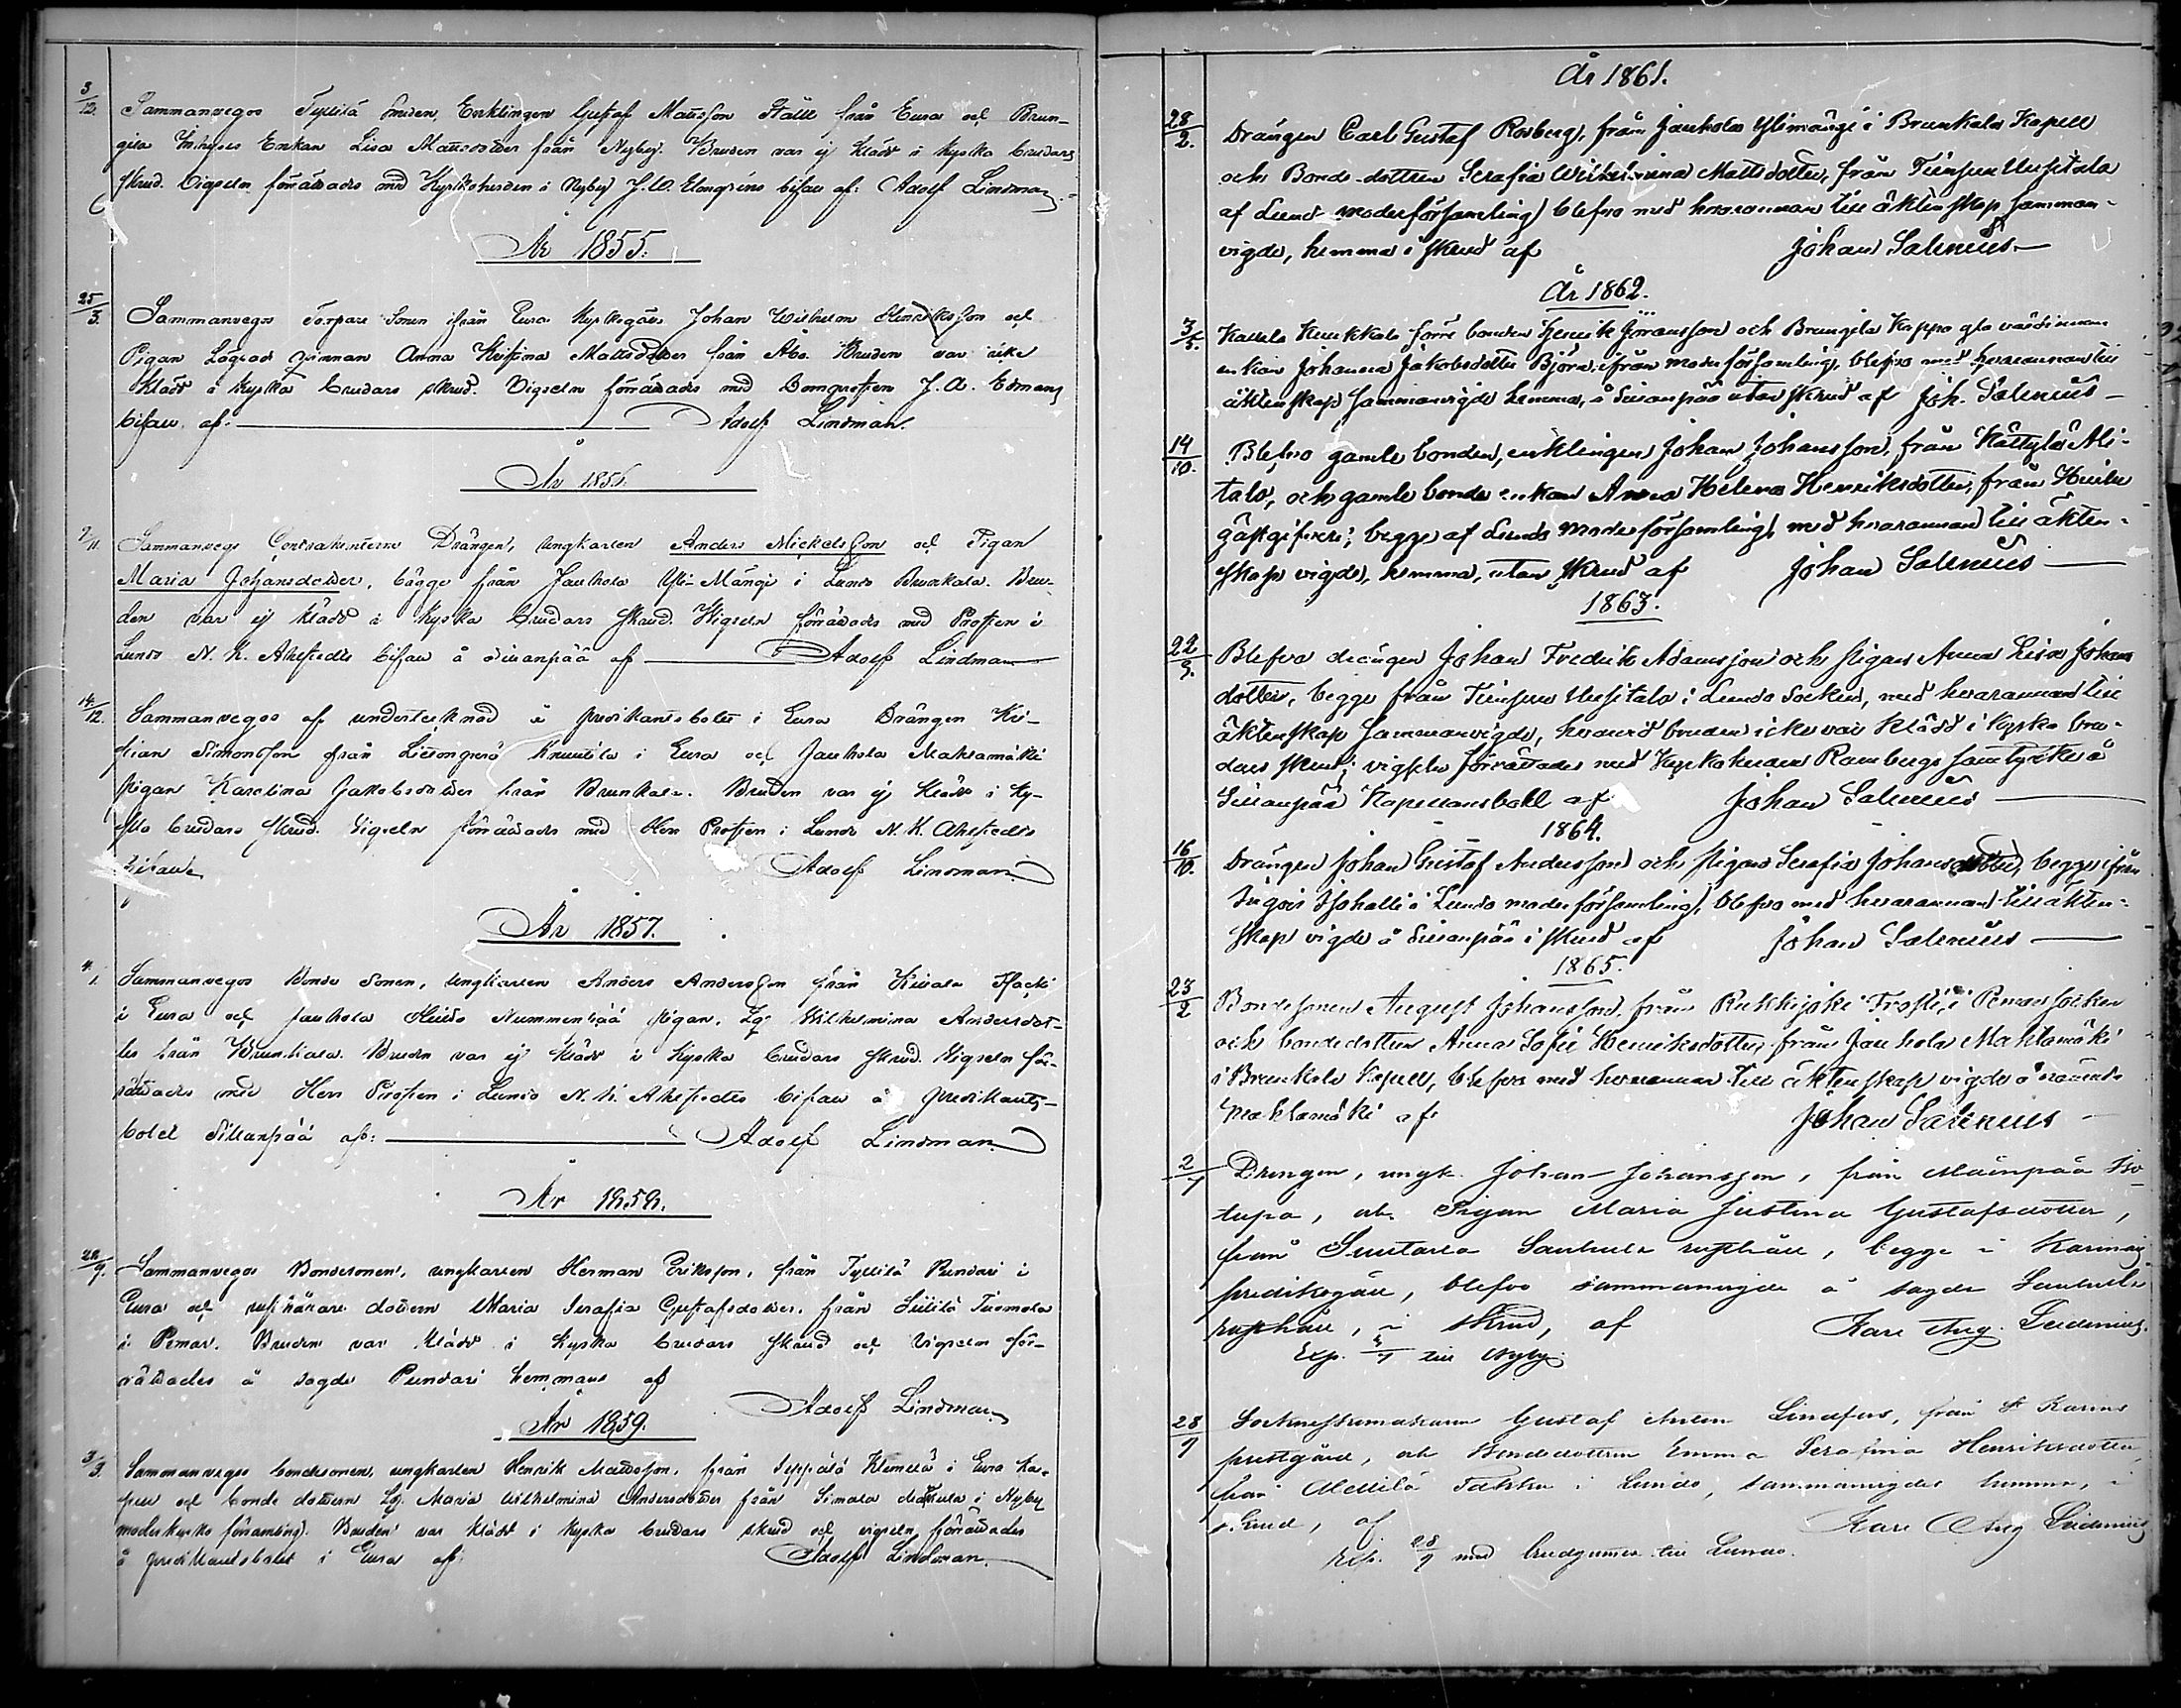 3/12. Sammanvegos Tyllilä Smeden, Enklingen Gustaf Mattsson Ståhl från Eura och Brun-
gila Inhyses Enkan Lisa Mattsdotter från Nyby. Bruden var ej klädd i kyska brudars
skrud. Vigseln förrättades med Kyrkoherden i Nyby J. W. Elmgréns bifall af: Adolf Lindman.
År 1855.
25/3. Sammanvegos Torpare Sonen ifrån Eura Kyrkogård Johan Wilhelm Henriksson och
Pigan Lägrad qvinnan Anna Kristina Mattsdotter från Åbo. Bruden var icke
klädd i kyska brudars skrud. Vigseln förrättades med Domprosten J. A. Edmans
bifall af: Adolf Lindman.
År 1856.
9/11. Sammanvegs Contrahenterne Drängen, ungkarlen Anders Mickelsson och Pigan
Maria Johansdotter, bägge från Jauhola Yli-Mängi i Lundo Brunkala. Bru-
den var ej klädd i kyska brudars skrud. Wigseln förrättades med Prosten i
Lundo N. K. Ahlstedts bifall å Sillanpää af Adolf Lindman
14/12. Sammanvegos af undertecknad å predikantsbolet i Eura Drängen Kri-
stian Simonsson från Liedonperä Knuutila i Eura och Jauhola Mahlamäki
pigan Karolina Jakobsdotter från Brunkala. Bruden var ej klädd i ky-
ska brudars skrud. Vigseln förrättades med Herr Prosten i Lundo N. K. Ahlstedts
bifall. Adolf Lindman
År 1857.
4/1. Sammanvegos Bonde Sonen, ungkarlen Anders Andersson från Kivala
i Eura och Jauhola Nummenpää pigan, Wilhelmina Andersdot-
ter från Brunkala. Bruden var ej klädd i kyska brudars skrud. Vigseln för-
rättades med Herr Prosten i Lundo N. K. Ahlstedts bifall å predikants-
bolet Sillanpää af: Adolf Lindman
År 1858.
/9. Sammanvegos Bondesonen, ungkarlen Herman Eriksson, från Tyllilä Pundari i
Eura och rusthållare dottern Maria Serafia Gustafsdotter, från Tuomola
i Pemar. Bruden var klädd i kyska brudars skrud och vigseln för-
rättades å sagde Pundari hemmans af
Adolf Lindman
År 1859.
3/3. Sammanvegos bondesonen, ungkarlen Henrik Mattsson, från Seppälä Klemelä i Eura Ka-
pell och bonde dottern Maria Wilhelmina Andersdotter från Simala Mattila i Nyby
moderkyrko församling. Bruden var klädd i kyska brudars skrud och vigseln förrättades
å predikantsbolet i Eura af Adolf Lindman.
År 1861.
28/2. Drängen Carl Gustaf Rosberg, från Jauhola Ylimängi i Brunkala Kapell
och Bonde-dottren Serafia Wilhelmina Mattsdotter, från Tiensuu Uusitalo
af Lundo moderförsamling) blefvo med hvarannan till äktenskap samman-
vigde, hemma i skrud af Johan Salenius
År 1862.
3/5. förre bonden Henrik Göransson och Brungila
enkan Johanna Jakobsdotter Björn, ifrån moderförsamling, blefvo med hvarannan till
äktenskap sammanvigde hemma, å Sillanpää utan skrud af Joh. Salenius
14/10. Blefvo gamle bonden, enklingen Johan Johansson, från Kättylä Ali-
talo, och gamle bonde enkan Anna Helena Henriksdotter, från
gästgifveri; begge af Lundo Moderförsamling, med hvarannan till äkten-
skap vigde, hemma, utan skrud af Johan Salenius
1863.
22/3. Blefvo drängen Johan Fredrik Adamsson och pigan Anna Lisa Johans
dotter, begge från Tiensuu Uusitalo i Lundo Socken, med hvarannan till
äktenskap sammanvigde, hvarvid bruden icke var klädd i kyska bru-
dars skrud; vigseln förrättades med Kyrkoherden Rambergs samtycke å
Sillanpää Kapellansbohl af Johan Salenius
1864.
16/10. Drängen Johan Gustaf Andersson och pigan Serafia Johansdotter, begge ifrån
i Lundo moderförsamling, blefvo med hvarannan till äkten-
skap vigde å Sillanpää i skrud af Johan Salenius
1865.
23/2 Bondesonen August Johansson, från Rukkijoki Trosti, i Pemar socken
och bondedottren Anna Sofia Henriksdotter, från Jauhola Mahlamäki
i Brunkala Kapell, blefvo med hvarannan till äktenskap vigde å nämnde
Mahlamäki af Johan Salenius
2/7 Drengen, ungk. Johan Johansson, från Mäenpää Iso
tupa, och Pigan Maria Justina Gustafsdotter,
från Suutarla rusthåll, begge i Karinais
predikogäll, blefvo sammanvigde å sagde
rusthåll, i skrud, af Karl Aug. Lidenius.
Exp. /7 till Nyby.
28/9 Sockneskomakaren Gustaf Lindfors, från St Karins
prestgård, och Bondedottren Emma Serafina Henriksdotter,
från Mellilä i Lundo, sammanvigdes hemma, i
skrud, af Karl Aug Lidenius
Exp. 28/9 med brudgumen till Lundo.